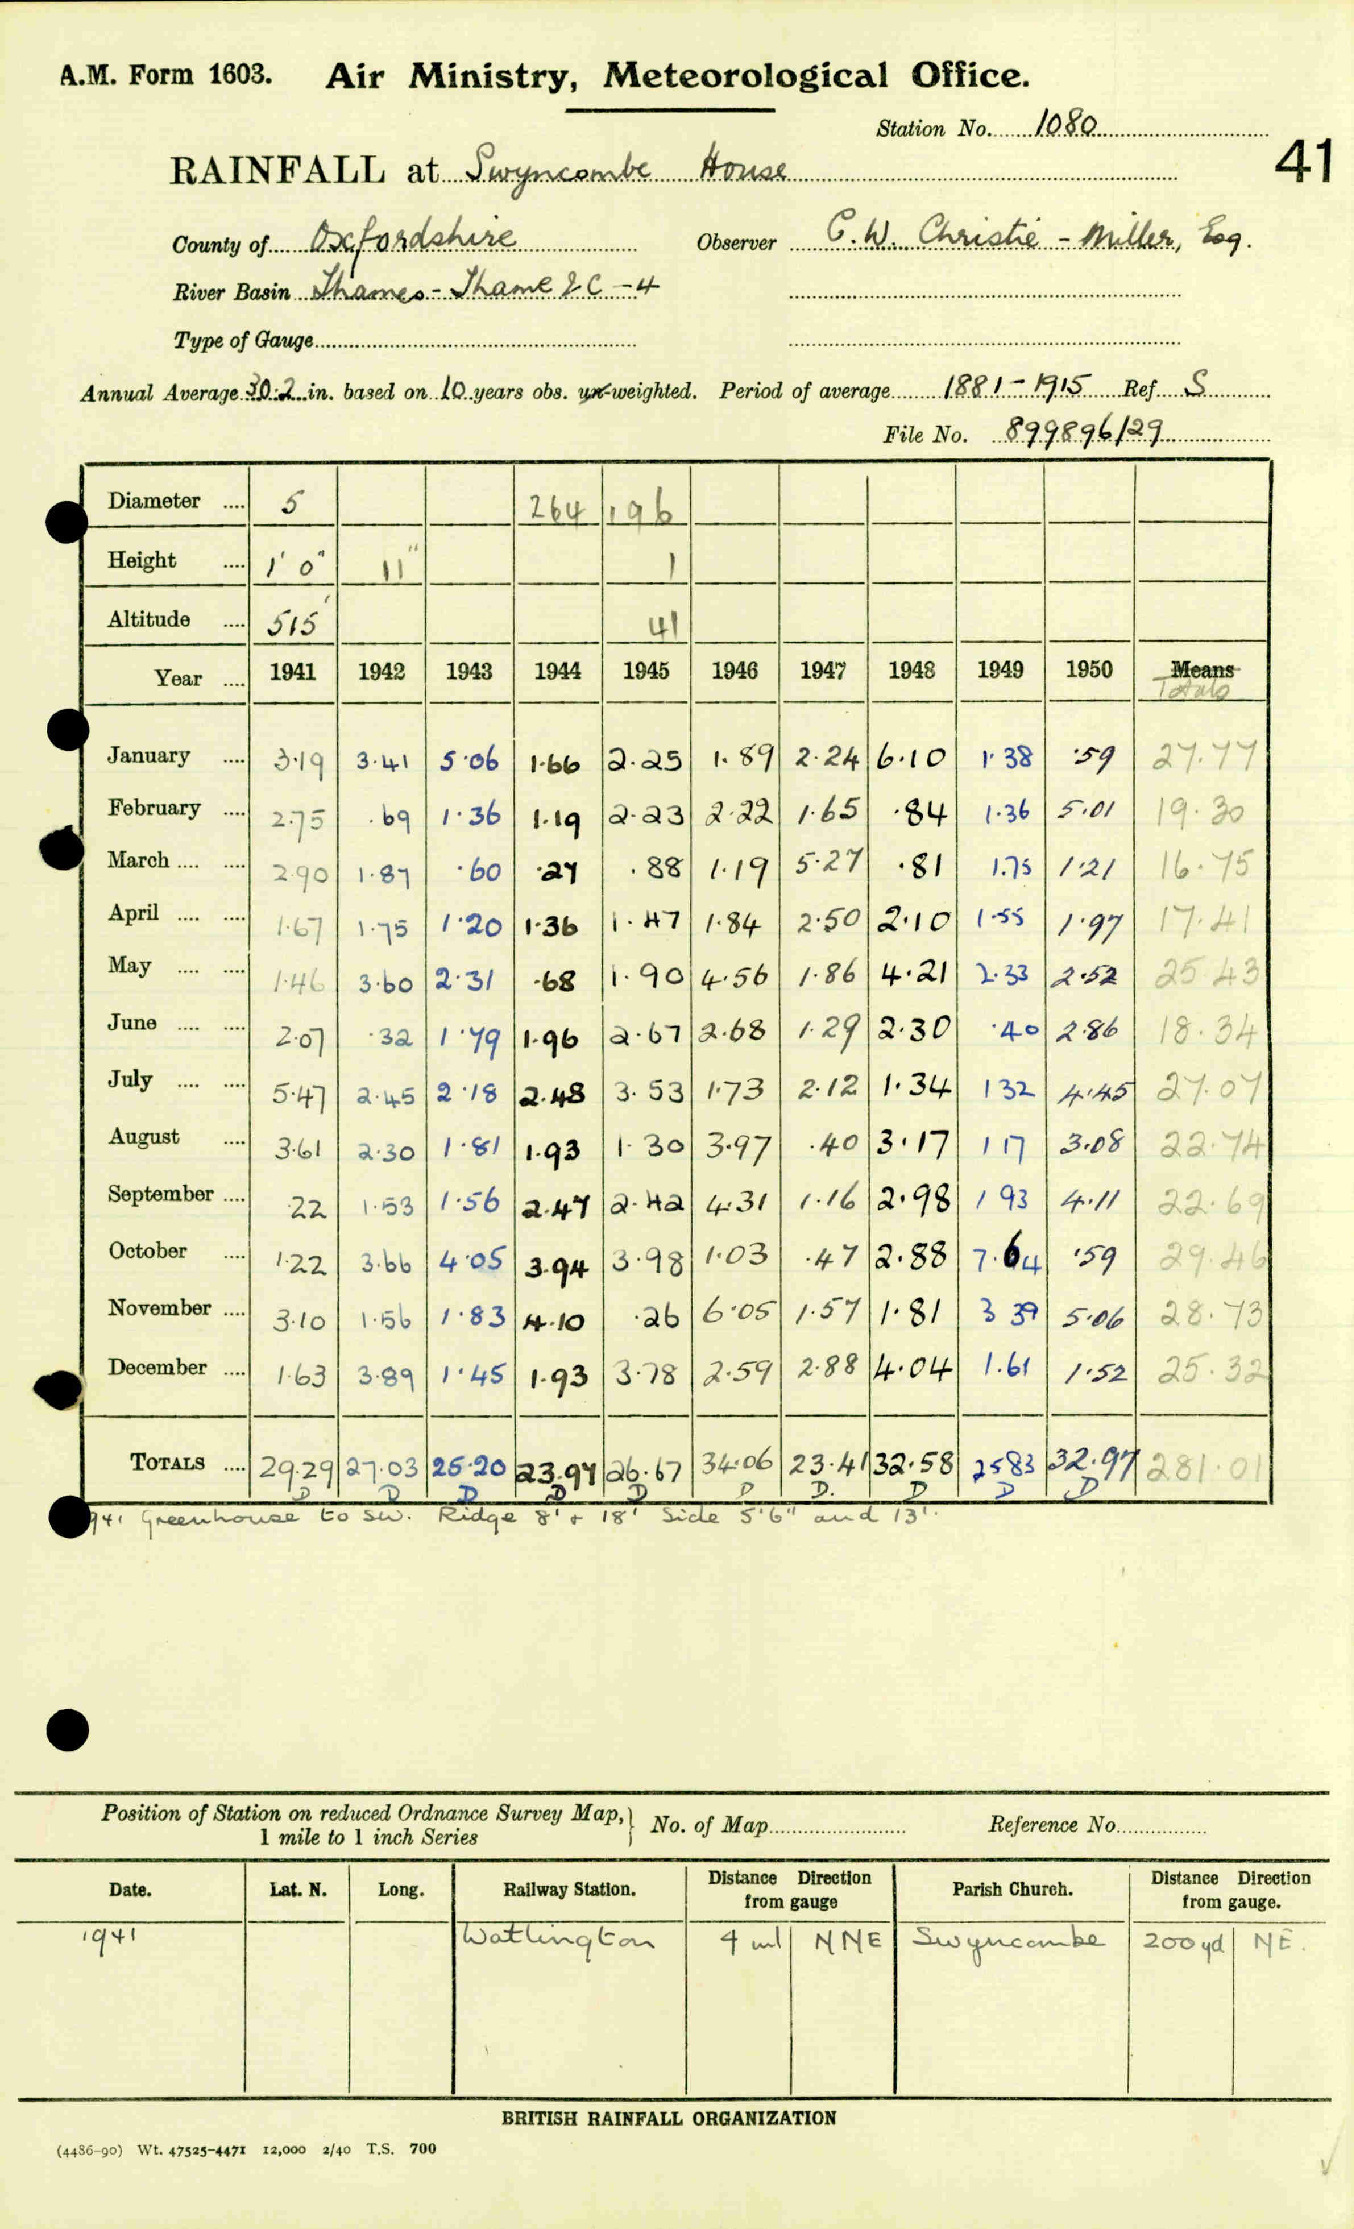 A.M. Form 1603. Air Ministry, Meteorological Office.
Station No. 1080
41
RAINFALL at Swyncombe House
County of Oxfordshire Observer C.W. Christie-Miller, Esq.
River Basin Thames - Thame & C - 4
Type of Gauge
Annual Average 30.2 in. based on 10 years obs. un-weighted. Period of average 1881-1915 Ref S
File No. 899896/29
Diameter .... 5 264 196
Height .... 1' 0" 11" 1
Altitude .... 515' 41
Year .... 1941 1942 1943 1944 1945 1946 1947 1948 1949 1950 Means
Totals
January .... 3.19 3.41 5.06 1.66 2.25 1.89 2.24 6.10 1.38 .59 27.77
February .... 2.75 .69 1.36 1.19 2.23 2.22 1.65 .84 1.36 5.01 19.30
March .... .... 2.90 1.87 .60 .27 .88 1.19 5.27 .81 1.75 1.21 16.75
April .... .... 1.67 1.75 1.20 1.36 1.47 1.84 2.50 2.10 1.55 1.97 17.41
May .... .... 1.46 3.60 2.31 .68 1.90 4.56 1.86 4.21 2.33 2.52 25.43
June .... .... 2.07 .32 1.79 1.96 2.67 2.68 1.29 2.30 .40 2.86 18.34
July .... .... 5.47 2.45 2.18 2.48 3.53 1.73 2.12 1.34 1 32 4.45 27.07
August .... 3.61 2.30 1.81 1.93 1.30 3.97 .40 3.17 1 17 3.08 22.74
September .... .22 1.53 1.56 2.47 2.42 4.31 1.16 2.98 1 93 4.11 22.69
October .... 1.22 3.66 4.05 3.94 3.98 1.03 .47 2.88 7.64 .59 29.46
November .... 3.10 1.56 1.83 4.10 .26 6.05 1.57 1.81 3 39 5.06 28.73
December .... 1.63 3.89 1.45 1.93 3.78 2.59 2.88 4.04 1.61 1.52 25.32
TOTALS .... 29.29 27.03 25.20 23.97 26.67 34.06 23.41 32.58 25 83 32.97 281.01
D D D D D D D. D D D
941 Greenhouse to SW. Ridge 8' & 18' Side 5'6" and 13'.
Position of Station on reduced Ordnance Survey Map, No. of Map Reference No
1 mile to 1 inch Series
Date. Lat. N. Long. Railway Station. Distance Direction from gauge Parish Church. Distance Direction from gauge.
1941 Watlington 4 ml NNE Swyncombe 200 yd NE.
BRITISH RAINFALL ORGANIZATION
(4486-90) Wt. 47525-4471 12,000 2/40 T.S. 700